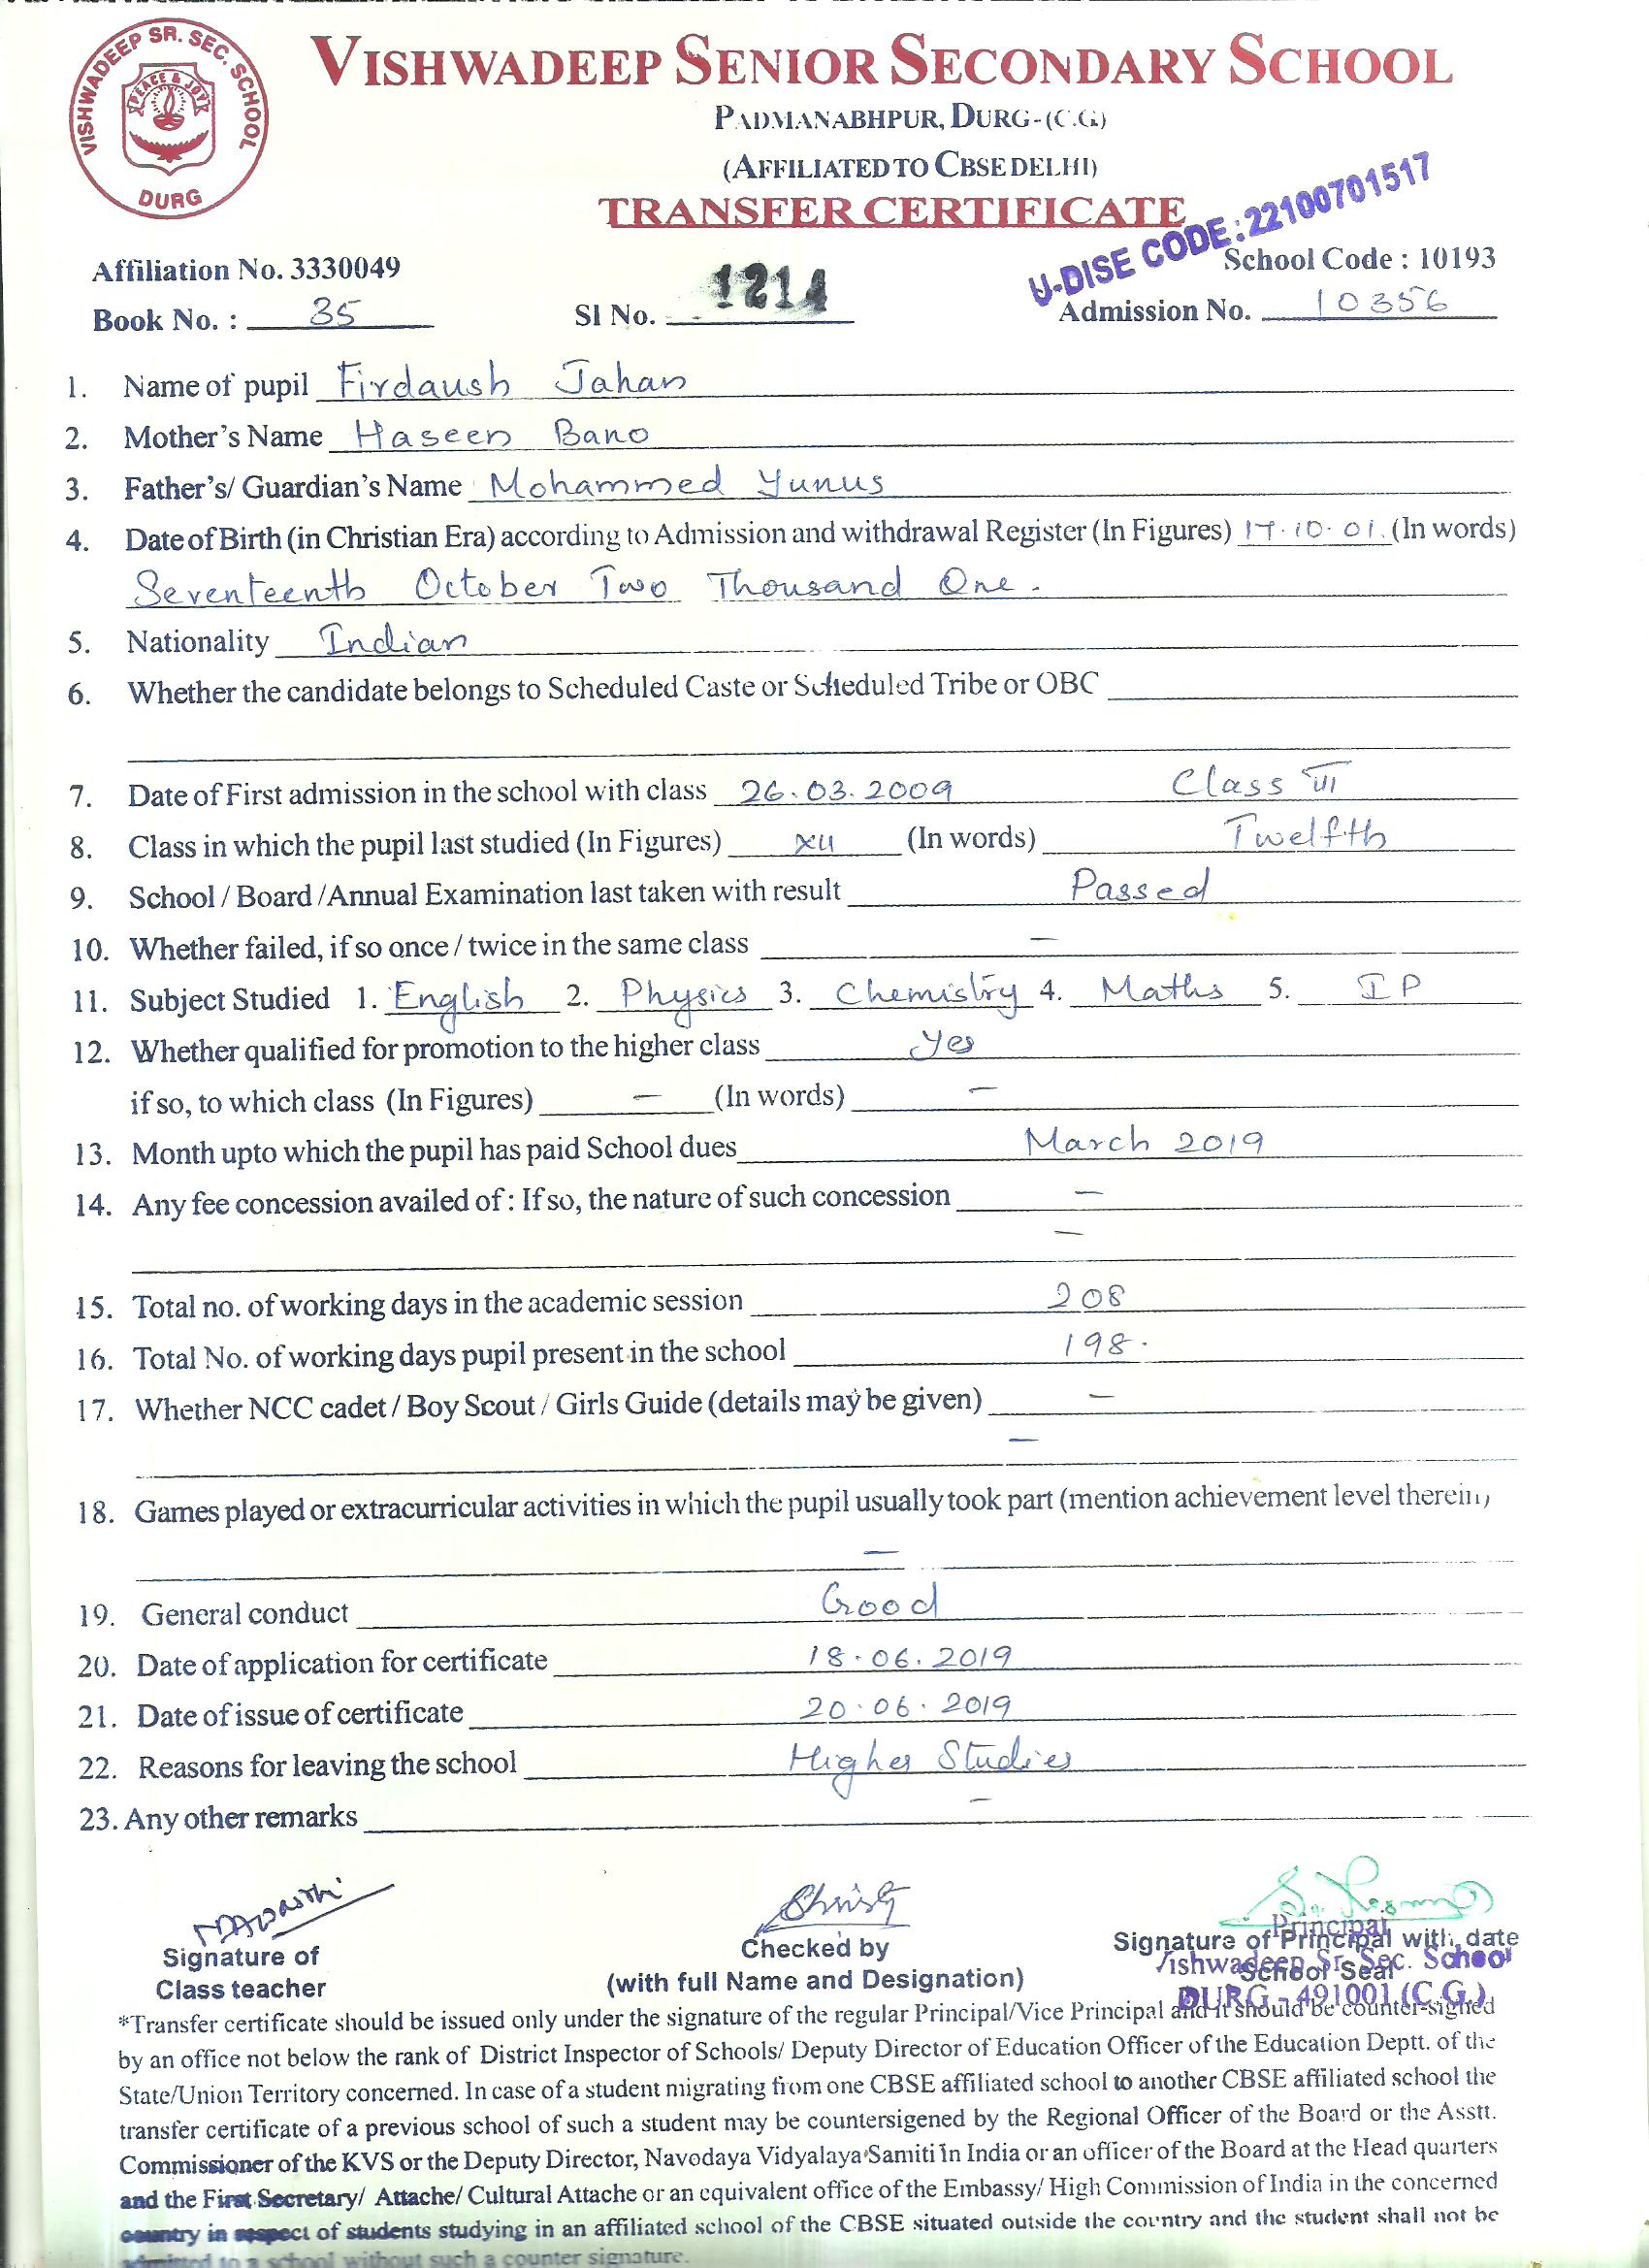 VISHWADEEP SR. SEC. SCHOOL
PEACE & JOY
DURG
VISHWADEEP SENIOR SECONDARY SCHOOL
PADMANABHPUR, DURG-(C.G.)
(AFFILIATED TO CBSE DELHI)
TRANSFER CERTIFICATE
U-DISE CODE:22100701517
Affiliation No. 3330049 School Code : 10193
Book No. : 35 Sl No. 1214 Admission No. 10356
1. Name of pupil Firdaush Jahan
2. Mother's Name Haseen Bano
3. Father's/ Guardian's Name Mohammed Yunus
4. Date of Birth (in Christian Era) according to Admission and withdrawal Register (In Figures) 17.10.01. (In words)
Seventeenth October Two Thousand One.
5. Nationality Indian
6. Whether the candidate belongs to Scheduled Caste or Scheduled Tribe or OBC
7. Date of First admission in the school with class 26.03.2009 Class III
8. Class in which the pupil last studied (In Figures) XII (In words) Twelfth
9. School / Board /Annual Examination last taken with result Passed
10. Whether failed, if so once / twice in the same class —
11. Subject Studied 1. English 2. Physics 3. Chemistry 4. Maths 5. IP
12. Whether qualified for promotion to the higher class Yes
if so, to which class (In Figures) — (In words) —
13. Month upto which the pupil has paid School dues March 2019
14. Any fee concession availed of : If so, the nature of such concession —
—
15. Total no. of working days in the academic session 208
16. Total No. of working days pupil present in the school 198.
17. Whether NCC cadet / Boy Scout / Girls Guide (details may be given) —
—
18. Games played or extracurricular activities in which the pupil usually took part (mention achievement level therein)
—
19. General conduct Good
20. Date of application for certificate 18.06.2019
21. Date of issue of certificate 20.06.2019
22. Reasons for leaving the school Higher Studies
23. Any other remarks —
Signature of
Class teacher
Checked by
(with full Name and Designation)
Signature of Principal with date
School Seal
Principal
Vishwadeep Sr. Sec. School
DURG - 491001 (C.G.)
*Transfer certificate should be issued only under the signature of the regular Principal/Vice Principal and it should be counter-signed
by an office not below the rank of District Inspector of Schools/ Deputy Director of Education Officer of the Education Deptt. of the
State/Union Territory concerned. In case of a student migrating from one CBSE affiliated school to another CBSE affiliated school the
transfer certificate of a previous school of such a student may be countersigened by the Regional Officer of the Board or the Asstt.
Commissioner of the KVS or the Deputy Director, Navodaya Vidyalaya Samiti in India or an officer of the Board at the Head quarters
and the First Secretary/ Attache/ Cultural Attache or an equivalent office of the Embassy/ High Commission of India in the concerned
country in respect of students studying in an affiliated school of the CBSE situated outside the country and the student shall not be
admitted to a school without such a counter signature.